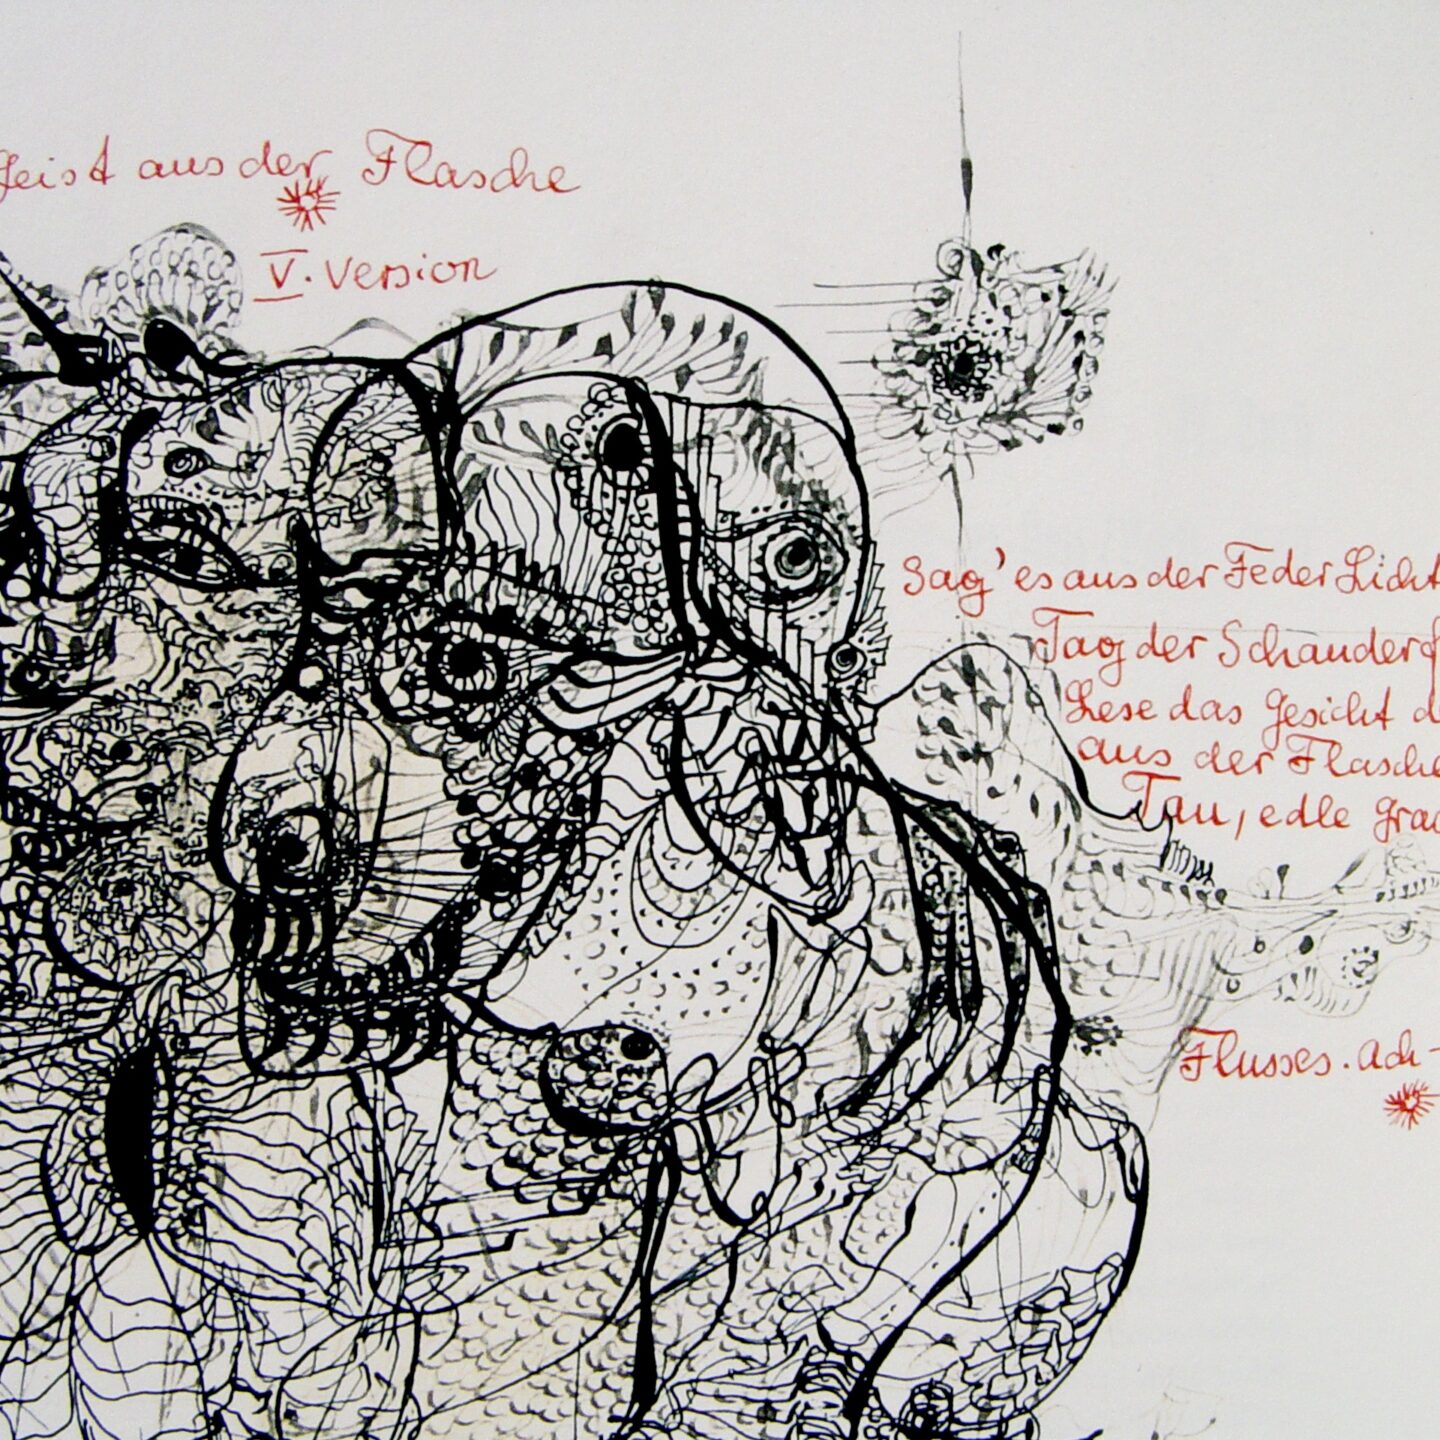 Geist aus der Flasche
V. Version
Sag' es aus der Feder Licht
Tag der Schauder
Lese das Gesicht d
aus der Flasche
Tau, edle Gra
Flusses. Ach -